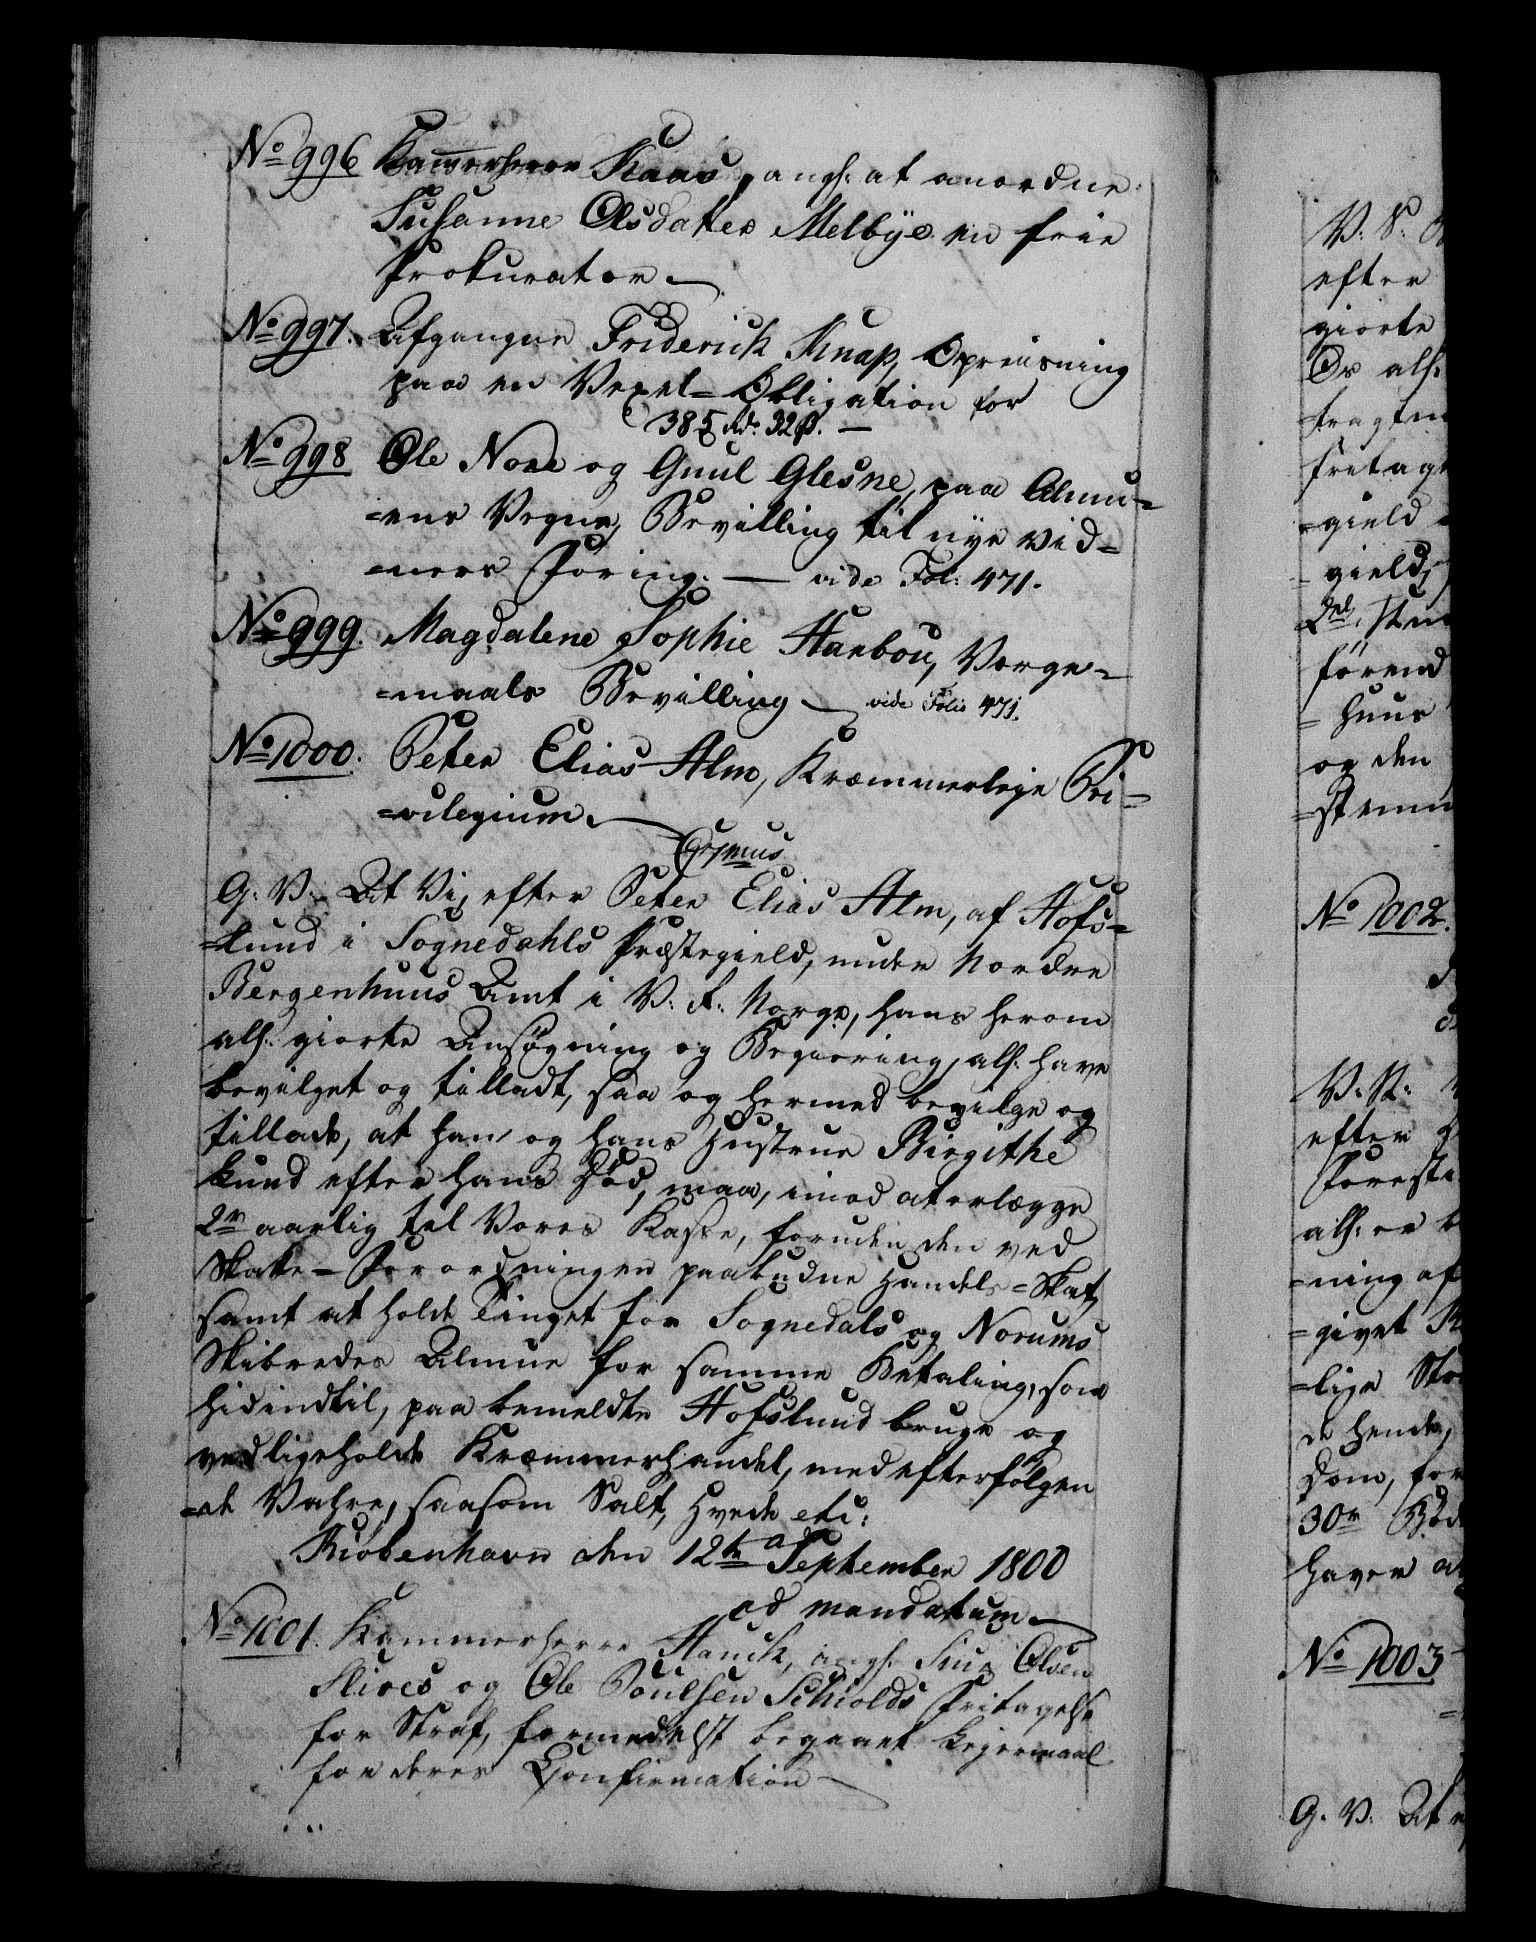 No 996 Kammerherre Kaas, angl: at anordne
Susanne Olsdatter Melbye en frie
Prokurator.
No 997. Afgangne Friderick Knap, Opreisning
paa en Vexel=Obligation for
385 rd. 32 ß. —
No 998 Ole Nore og Gunul Glesne, paa Almu=
=ens Vegne, Bevilling til nye Vid=
=ners Føring. — vide Fol: 471.
No 999. Magdalene Sophie Harbou, Værge=
=maals Bevilling — vide Folio 471.
No 1000. Peter Elias Alm, Kræmmerleje Pri=
=vilegium.
G: V: At Vi, efter Peter Elias Alm, af Hofs=
=lund i Sognedahls Præstegield, under Nordre
Bergenhuus Amt i V: R: Norge, hans herom
all: giorte Ansøgning og Begiering, all: have
bevilget og tilladt, saa og hermed bevilge og
tillade, at han og hans Hustrue Birgithe
Lund efter hans Død, maa, imod at erlægge
2 rd aarlig til Vores Kasse, foruden den ved
Skatte-Forordningen paabudne Handels=Skat,
samt at holde Tinget for Sognedals og Norums
Skibredes Almue for samme Betaling, som
hidindtil, paa bemeldte Hofslund bruge og
vedligeholde Kræmmerhandel, med efterfølgen
=de Vahre, saasom Salt, Hvede etc:
Kiøbenhavn den 12te September 1800
ad mandatum
No 1001. Kammerherre Hauch, angl: Siur Olsen
Slires og Ole Poulsen Schiolds Fritagelse
for Straf, formedelst begaaet Leiermaal
for deres Confirmation
V: S:
efter
giorte
Or all:
fritag
=gield
gield,
førend
= huus
og den
No 1002.
V: St:
efter
Foresti
all: er
=ning af
=givet
=lige
de hende,
dom, for
30 rd
haver
No 1003
G. V. At